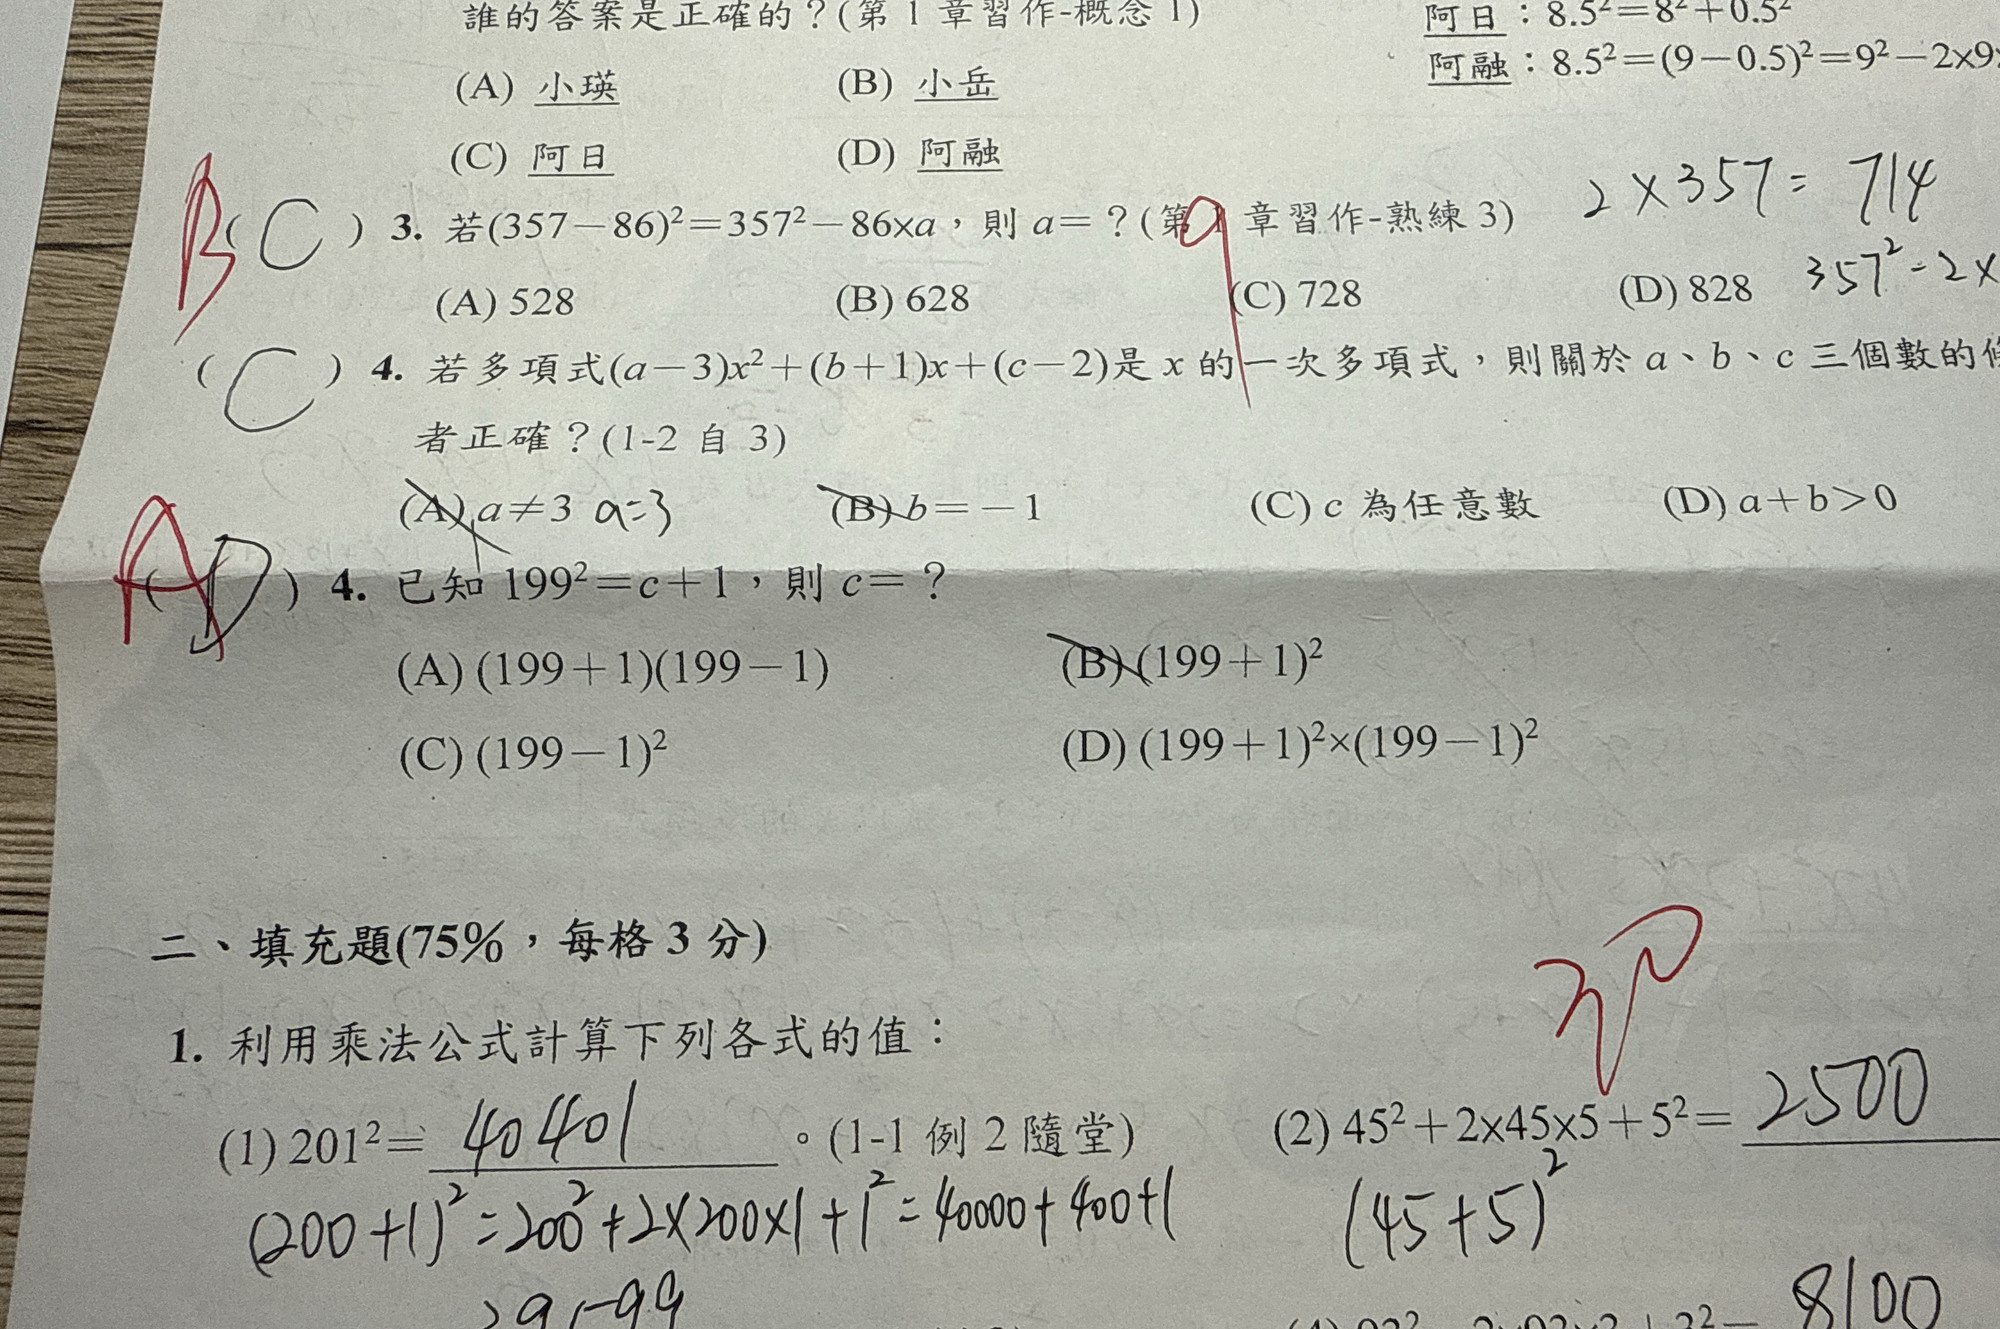 誰的答案是正確的？(第 1 章習作-概念 1)
阿日：8.5²＝8²＋0.5²
阿融：8.5²＝(9－0.5)²＝9²－2×9
(A) 小瑛 (B) 小岳
(C) 阿日 (D) 阿融
2×357=714
B ( C ) 3. 若(357－86)²＝357²－86×a，則 a＝？(第 1 章習作-熟練 3)
(A) 528 (B) 628 (C) 728 (D) 828 357²-2×
( C ) 4. 若多項式(a－3)x²＋(b＋1)x＋(c－2)是 x 的一次多項式，則關於 a、b、c 三個數的
者正確？(1-2 自 3)
(A) a≠3 a=3 (B) b＝－1 (C) c 為任意數 (D) a＋b＞0
A ( D ) 4. 已知 199²＝c＋1，則 c＝？
(A) (199＋1)(199－1) (B) (199＋1)²
(C) (199－1)² (D) (199＋1)²×(199－1)²
二、填充題(75%，每格 3 分)
1. 利用乘法公式計算下列各式的值：
(1) 201²＝ 40401 。(1-1 例 2 隨堂) (2) 45²＋2×45×5＋5²＝ 2500
(200+1)²=200²+2×200×1+1²=40000+400+1 (45+5)²
8100